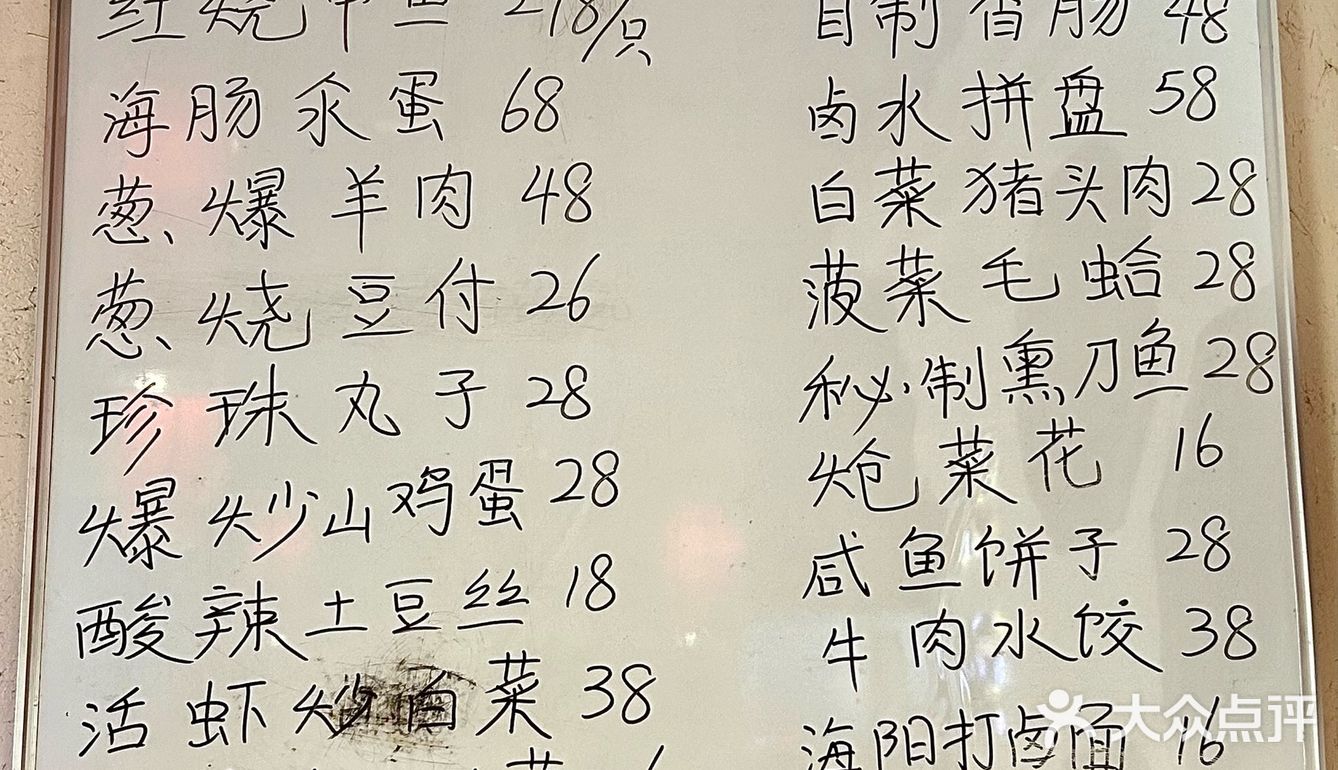 红烧甲鱼 218/只
海肠汆蛋 68
葱爆羊肉 48
葱烧豆付 26
珍珠丸子 28
爆炒山鸡蛋 28
酸辣土豆丝 18
活虾炒白菜 38
菜
自制香肠 48
卤水拼盘 58
白菜猪头肉 28
菠菜毛蛤 28
秘制熏刀鱼 28
炝菜花 16
咸鱼饼子 28
牛肉水饺 38
海阳打卤面 16
大众点评